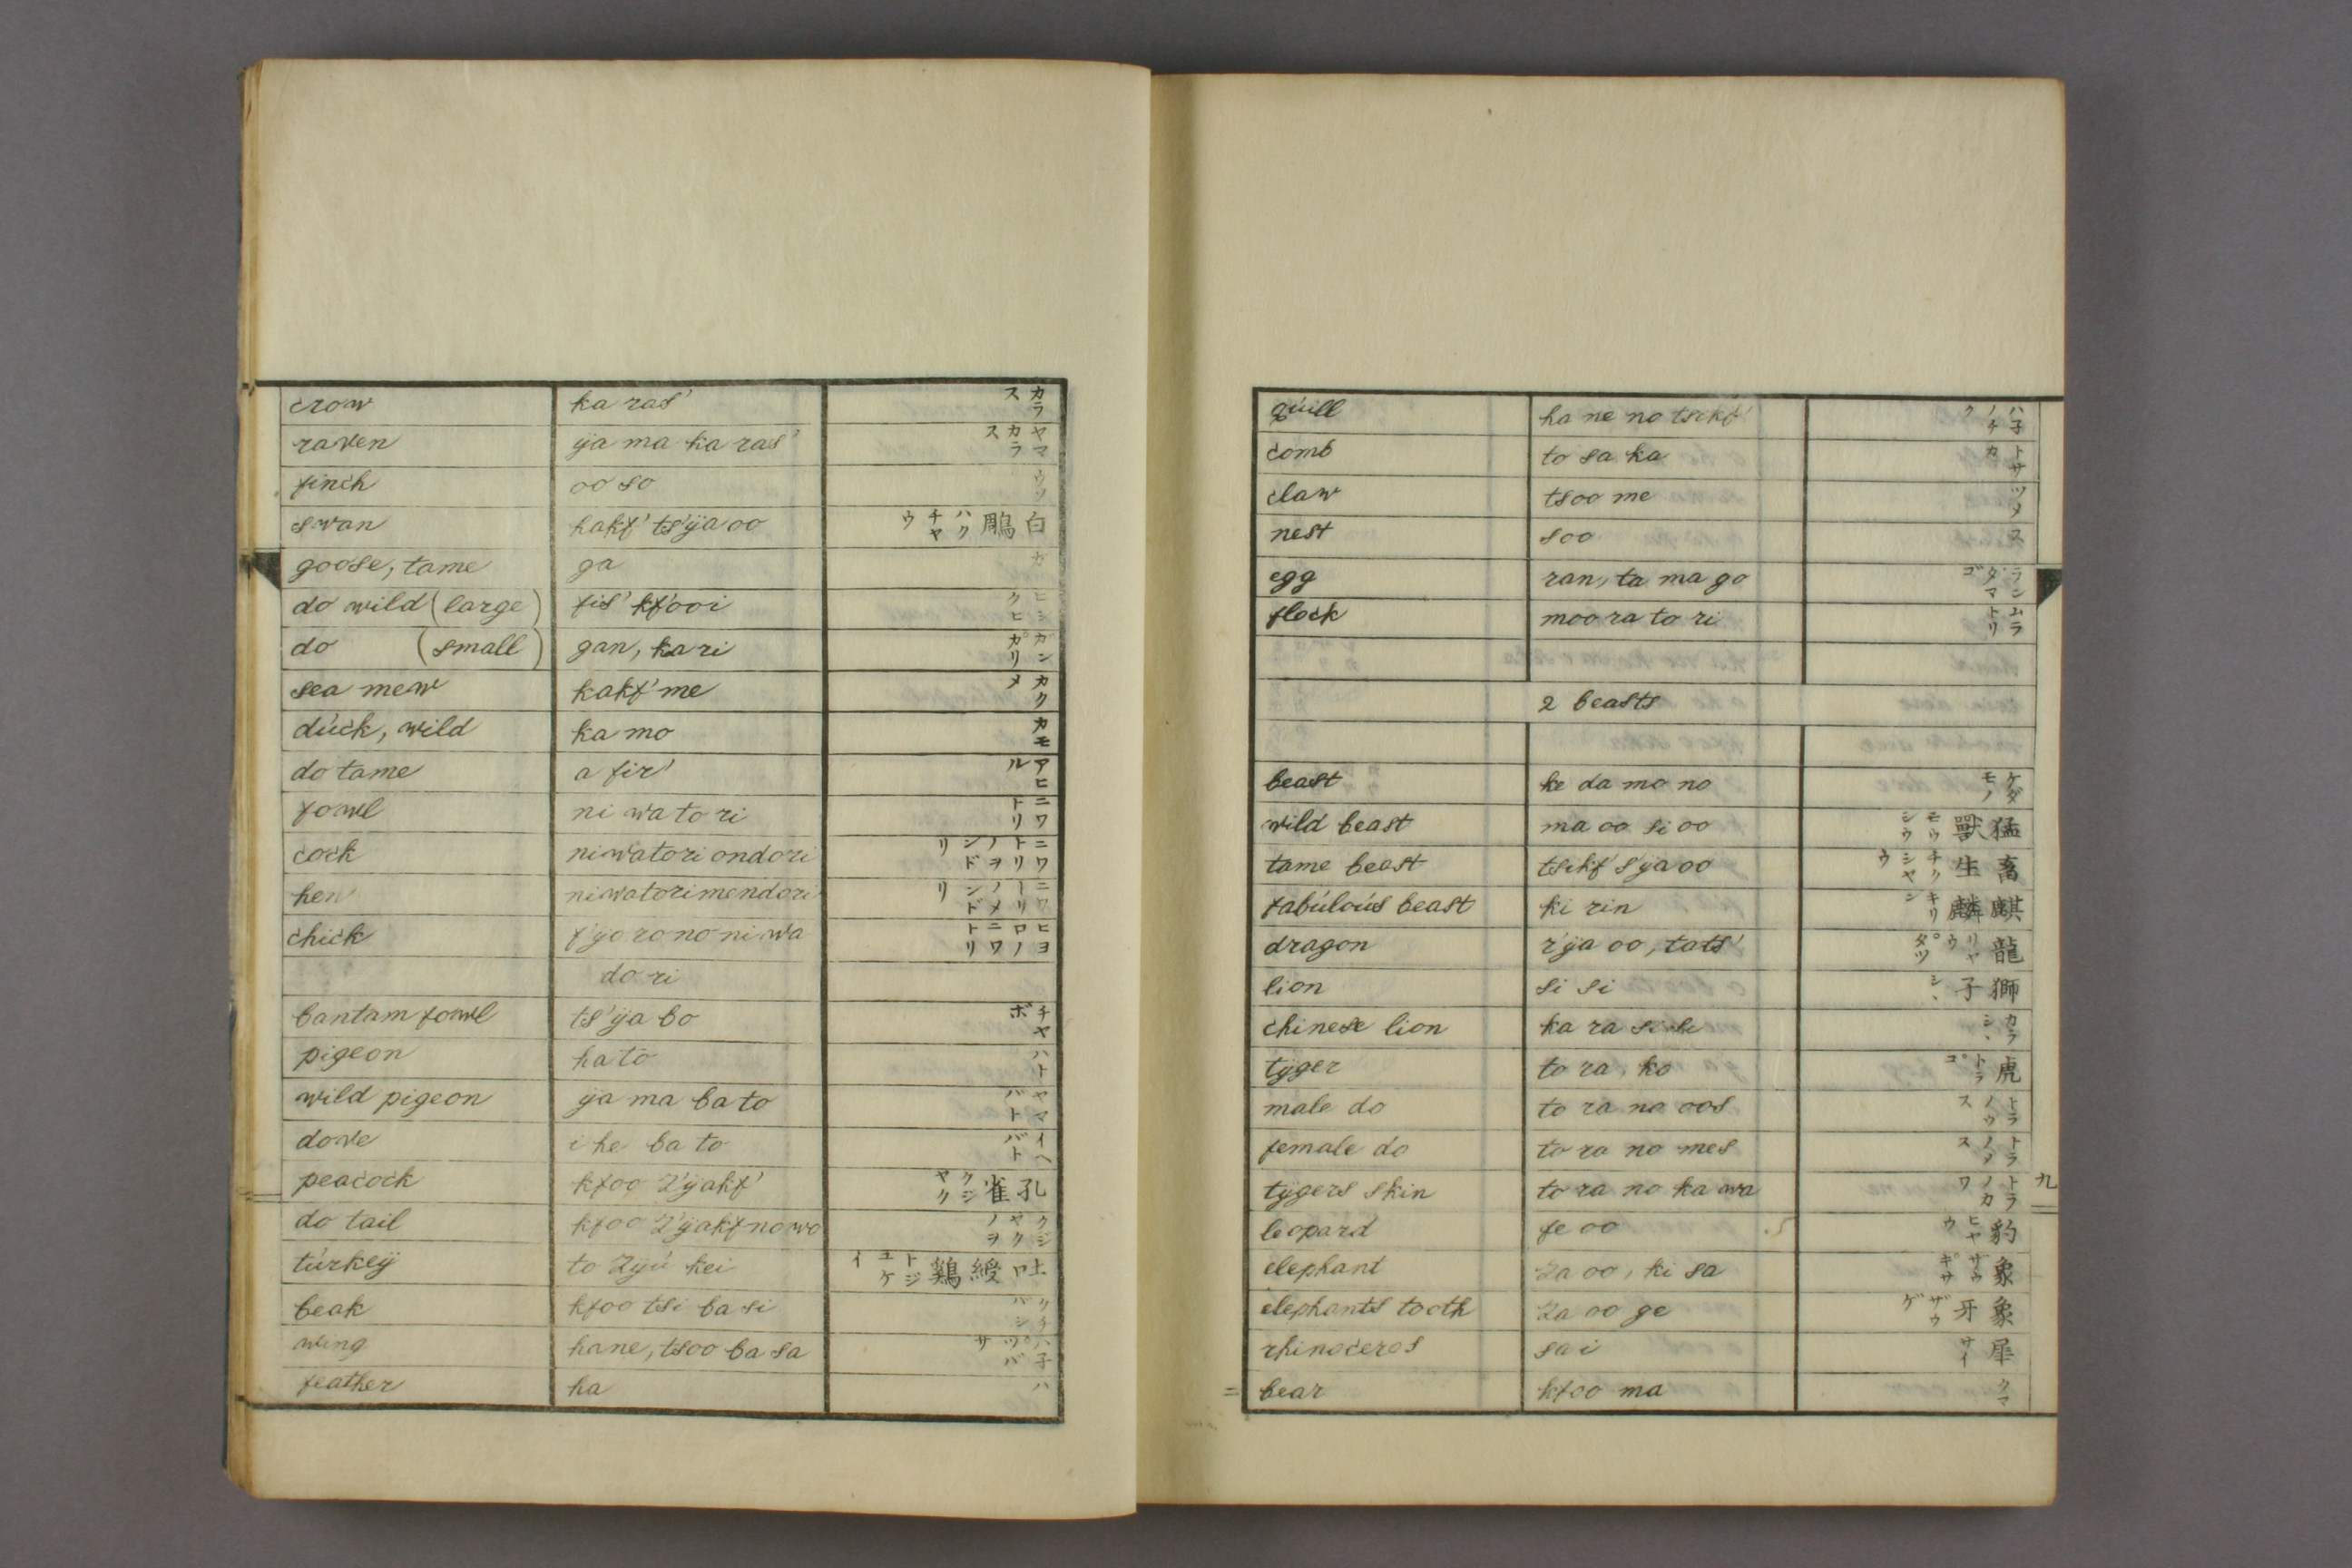 crow ka ras' カラス
raven ÿa ma ka ras' ヤマカラス
finch oo so ウソ
swan hakf' ts'ÿa oo 白鵰 ハクチヤウ
goose, tame ga ガ
do wild (large) fis' kf'ooi ヒシクヒ
do (small) gan, ka ri ガン カリ
sea mew kakf' me カクメ
dúck, wild ka mo カモ
do tame a fir' アヒル
fowl ni wa to ri ニワトリ
cock niwatori ondori ニワトリノヲンドリ
hen niwatorimendori ニワトリノメンドリ
chick f'ÿo ro no ni wa ヒヨロノニワトリ
do ri
bantam fowl ts'ÿa bo チヤボ
pigeon ha to ハト
wild pigeon ÿa ma ba to ヤマバト
dove i he ba to イヘバト
peacock kfoo z'ÿakf' 孔雀 クジヤク
do tail kfoo z'ÿakf no wo クジヤクノヲ
túrkeÿ to zÿú kei 吐綬鷄 トジユケイ
beak kfoo tsi ba si クチバシ
wing hane, tsoo ba sa ハ子 ツバサ
feather ha ハ
qúill ha ne no tsikf' ハ子ノチク
comb to sa ka トサカ
claw tsoo me ツメ
nest soo ス
egg ran, ta ma go ラン タマゴ
flock moo ra to ri ムラトリ
2 beasts
beast ke da mo no ケダモノ
wild beast ma oo si oo 猛獸 モウシウ
tame beast tsikf' s'ÿa oo 畜生 チクシヤウ
fabúloús beast ki rin 麒麟 キリン
dragon r'ÿa oo, tats' 龍 リヤウ タツ
lion si si 獅子 シヽ
chinese lion ka ra si si カラシヽ
tÿger to ra, ko 虎 トラ コ
male do to ra no oos トラノウス
female do to ra no mes トラノメス
tÿgers skin to ra no ka wa トラノカワ
九
leopard fe oo 豹 ヒヤウ
elephant za oo, ki sa 象 ザウ キサ
elephants tooth za oo ge 象牙 ザウゲ
rhinoceros sa i 犀 サイ
bear kfoo ma クマ